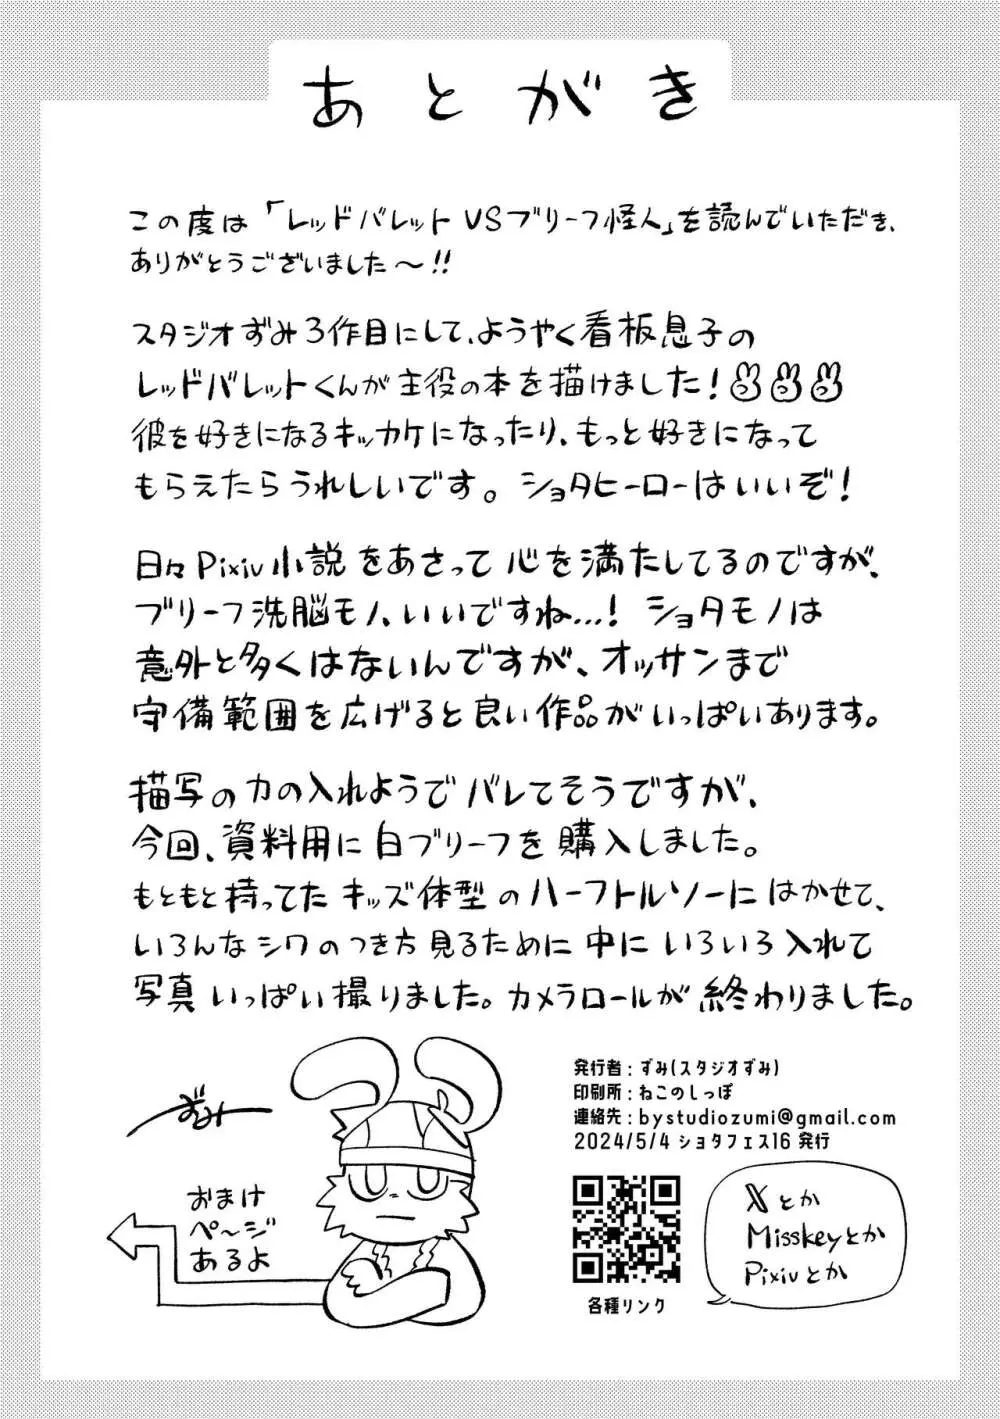 あとがき
この度は「レッドバレットVSブリーフ怪人」を読んでいただき、
ありがとうございました～!!
スタジオずみ3作目にして、ようやく看板息子の
レッドバレットくんが主役の本を描けました!
彼を好きになるキッカケになったり、もっと好きになって
もらえたらうれしいです。ショタヒーローはいいぞ!
日々Pixiv小説をあさって心を満たしてるのですが、
ブリーフ洗脳モノ、いいですね...! ショタモノは
意外と多くはないんですが、オッサンまで
守備範囲を広げると良い作品がいっぱいあります。
描写の力の入れようでバレてそうですが、
今回、資料用に白ブリーフを購入しました。
もともと持ってたキッズ体型のハーフトルソーにはかせて、
いろんなシワのつき方見るために中にいろいろ入れて
写真いっぱい撮りました。カメラロールが終わりました。
ずみ
おまけ
ページ
あるよ
発行者:ずみ(スタジオずみ)
印刷所:ねこのしっぽ
連絡先:bystudiozumi@gmail.com
2024/5/4 ショタフェス16 発行
各種リンク
𝕏とか
Misskeyとか
Pixivとか